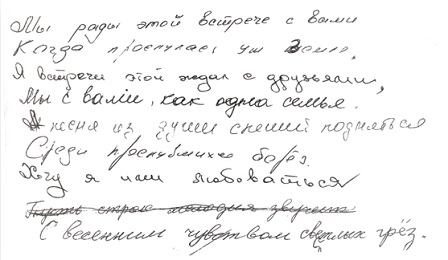 Мы рады этой встрече с вами
Когда проснулась уж Земля,
Я встречи этой ждал с друзьями,
Мы с вами, как одна семья.
Песня из души спешит подняться
Среди проснувшихся берёз.
Хочу я ими любоваться
Пусть строк мелодия звучит
С весенним чувством светлых грёз.